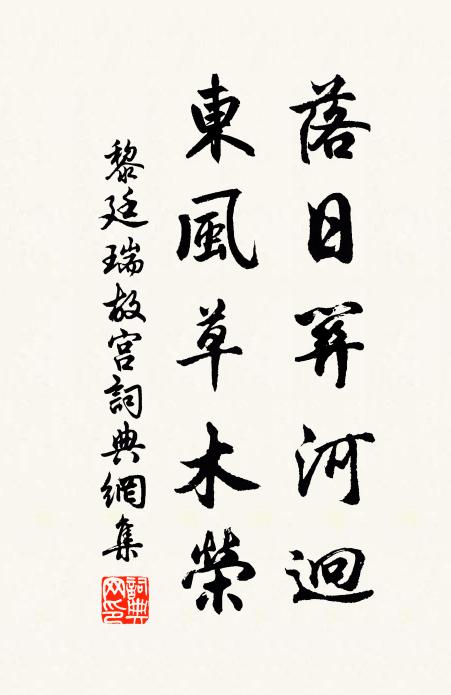 落日關河迥
東風草木榮
黎廷瑞故宫詞典網集
詞典
网印